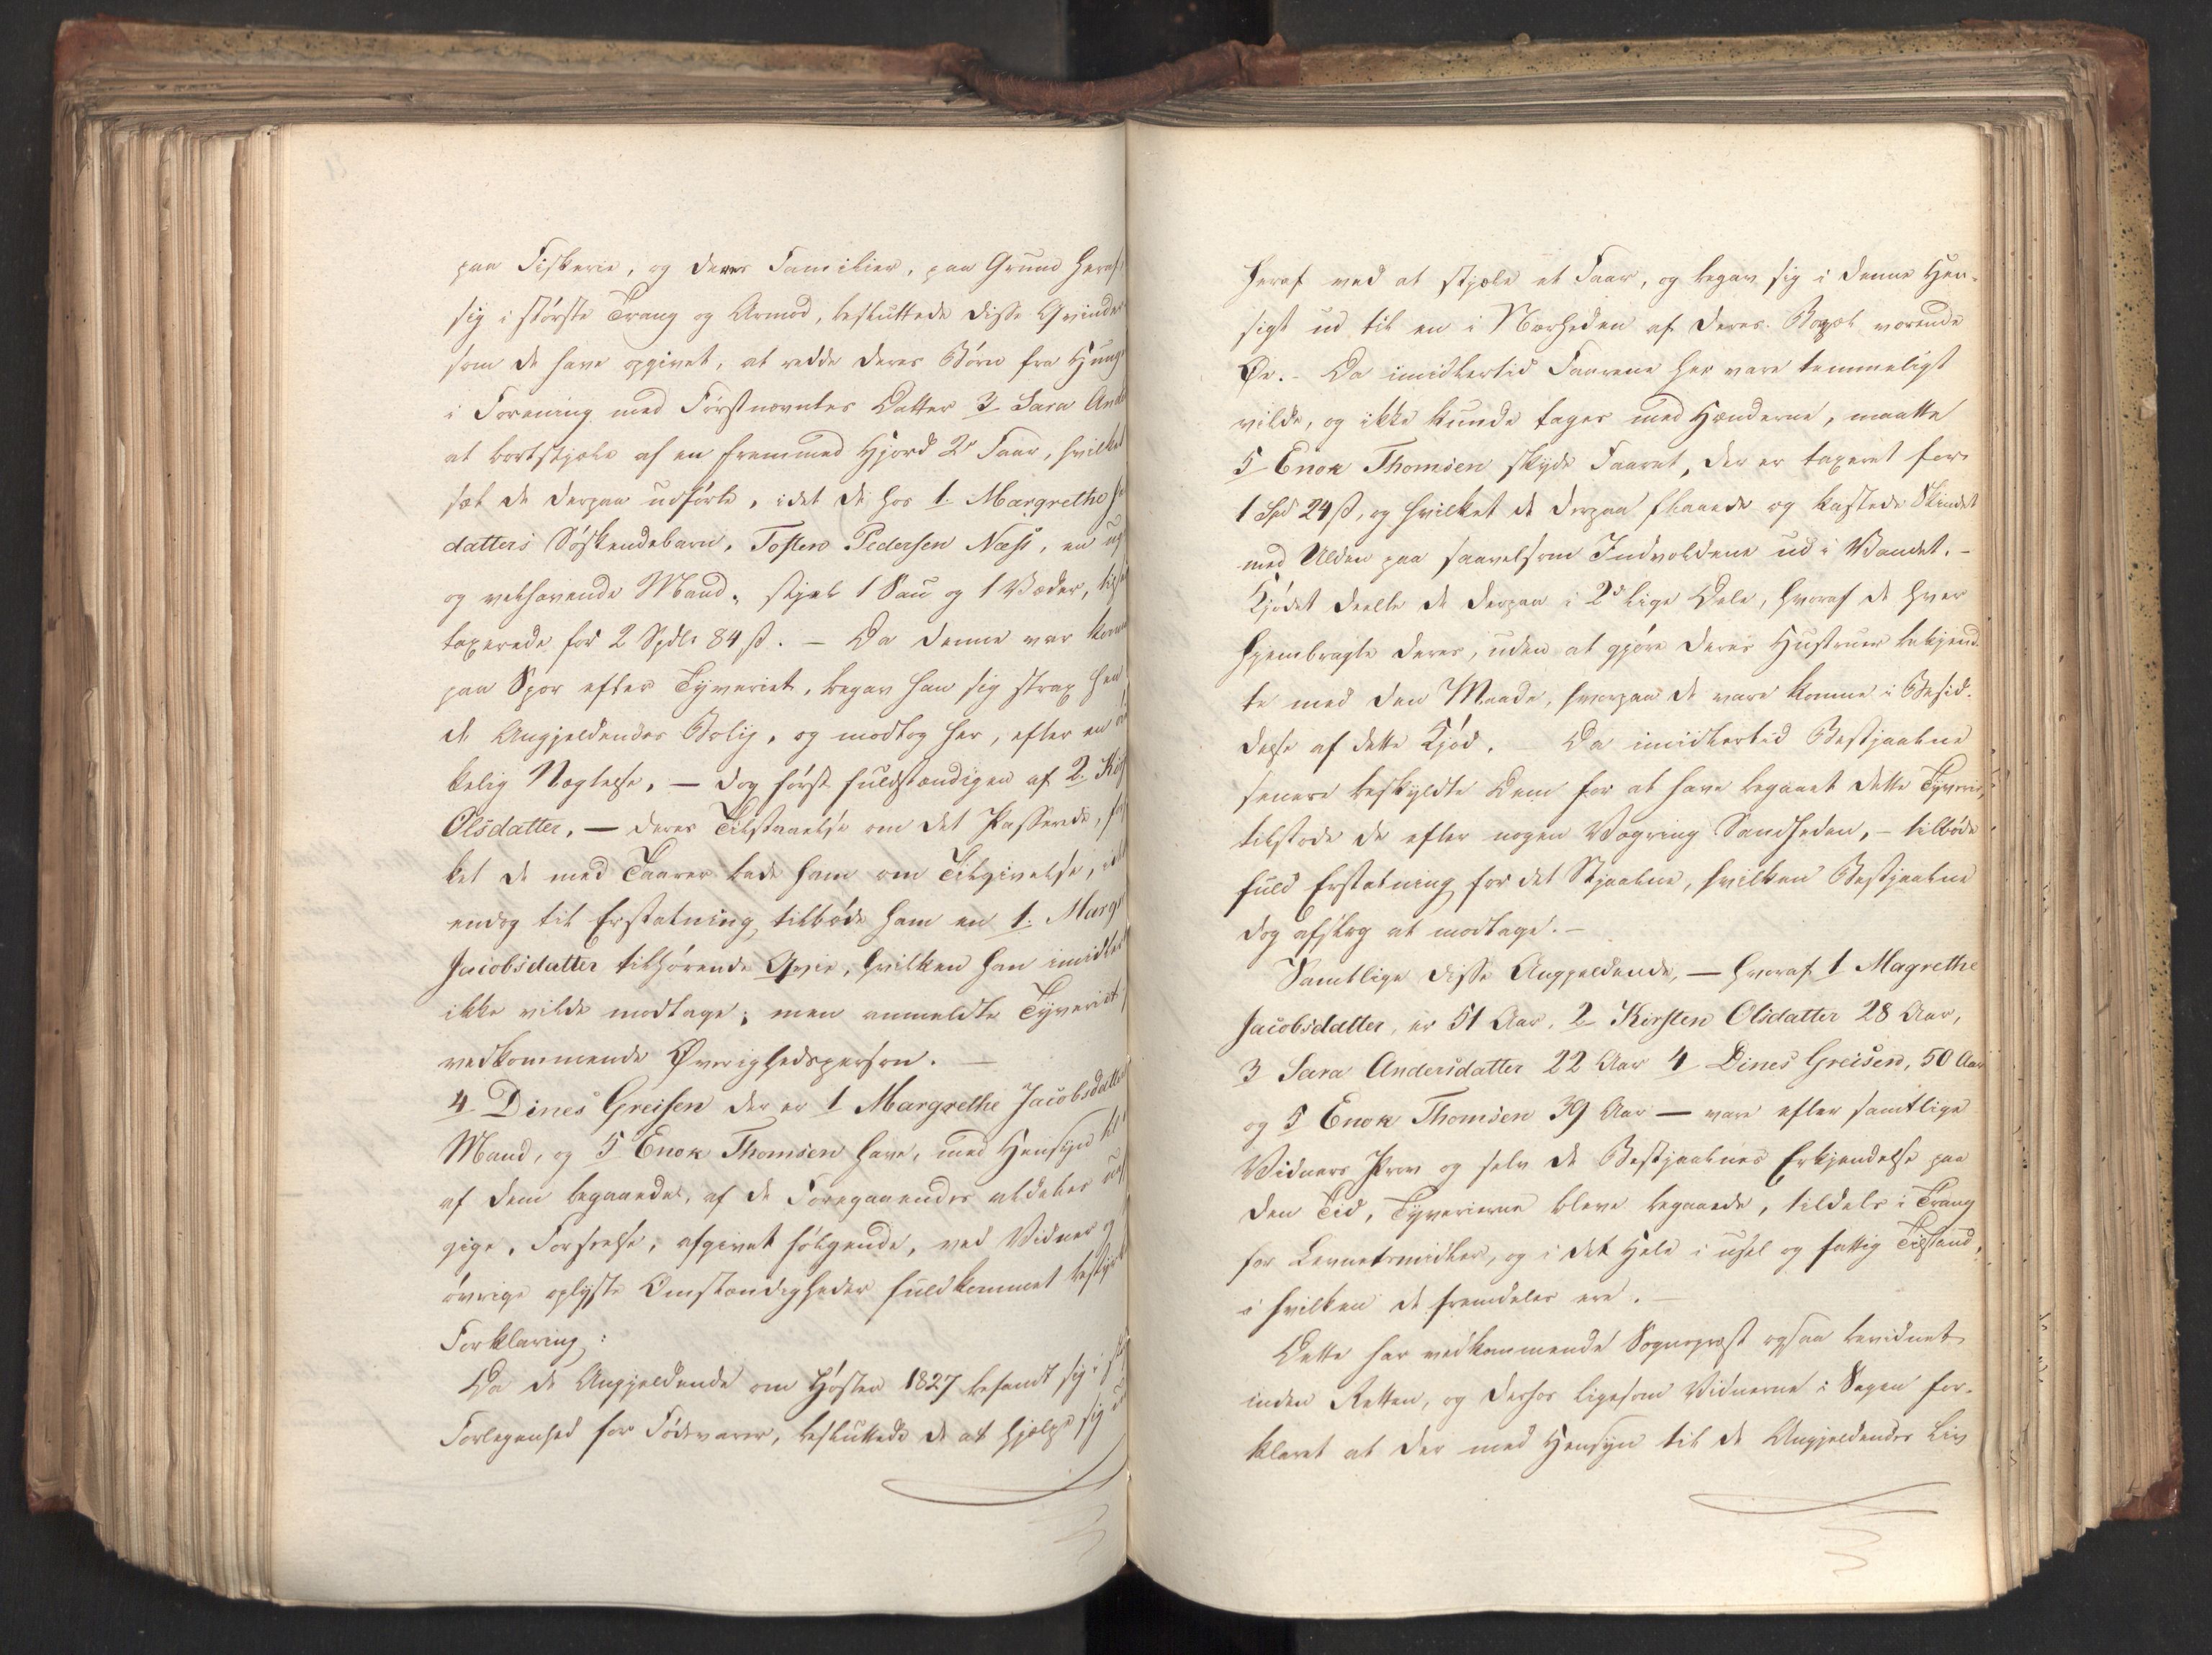 paa Fiskerie, og deres Familier, paa Grund heraf,
sig i största Trang og Armod, besluttede disse Qvinder
som de have opgivet, at redde deres Börn fra Hung
i Forening med Förstnævntes Datter 3 Sara And
at bortstjæle af en fremmed Hjord 2 Faar, hvilket
sæt de derpaa udförte, idet de hos 1. Margrethe
datters Söskendebarn, Tosten Pedersen Næss, en
og velhavende Mand, stjal 1 Sau og 1 Væder,
taxerede for 2 Spdlr 84 ß. — Da denne var kom
paa Spor efter Tyveriet, begav han sig strax hen
de Angjeldendes Bolig, og modtog her, efter en
kelig Nægtelse, — dog först fuldstændigen af 2. Kir
Olsdatter, — deres Tilstaaelse om det Passerede,
ket de med Taarer bade ham om Tilgivelse,
endog til Erstatning tilböde ham en 1. Margr
Jacobsdatter tilhörende Qvie, hvilken han imidler
ikke vilde modtage; men anmeldte Tyveriet
vedkommende Øvrighedsperson. —
4 Dines Greisen der er 1 Margrethe Jacobsdatter
Mand, og 5 Enok Thomsen have, med Hensyn til
af dem begaaede, af de Foregaaendes aldeles
gige, Forseelse, afgivet fölgende, ved Vidner og
övrige oplyste Omstændigheder fuldkommet bestyr
Forklaring:
Da de Angjeldende om Hösten 1827 befandt sig i
Forlegenhed for Födevarer, besluttede de at hjælpe sig
heraf ved at stjæle et Faar, og begav sig i denne Hen-
sigt ud til en i Nærheden af deres Bopæl værende
Øe. – Da imidlertid Faarene her vare temmeligt
vilde, og ikke kunde tages med Hænderne, maatte
5 Enok Thomsen skyde Faaret, der er taxeret for
1 Spd 24 ß, og hvilket de derpaa flaaede og kastede Skindet
med Ulden paa saavelsom Indvoldene ud i Vandet. –
Kjödet deelte de derpaa i 2 lige Dele, hvoraf de hver
hjembragte deres, uden at gjöre deres Hustruer bekjend-
te med den Maade, hvorpaa de vare komne i Besid-
delse af dette Kjöd. – Da imidlertid Bestjaalne
senere beskyldte Dem for at have begaaet dette Tyverie,
tilstode de efter nogen Vægring Sandheden, – tilböde
fuld Erstatning for det Stjaalne, hvilken Bestjaalne
dog afslog at modtage. –
Samtlige disse Angjeldende, — hvoraf 1 Magrethe
Jacobsdatter, er 51 Aar, 2 Kirsten Olsdatter 28 Aar,
3 Sara Andersdatter 22 Aar 4 Dines Greisen, 50 Aar
og 5 Enok Thomsen 39 Aar — vare efter samtlige
Vidners Prov og selv de Bestjaalnes Erkjendelse paa
den Tid, Tyverierne bleve begaaede, tildels i Trang
for Levnetsmidler, og i det Hele i ussel og fattig Tilstand,
i hvilken de fremdeles ere. —
Dette har vedkommende Sognepræst ogsaa bevidnet
inden Retten, og derhos ligesom Vidnerne i Sagen for-
klaret at der med Hensyn til de Angjeldendes Liv